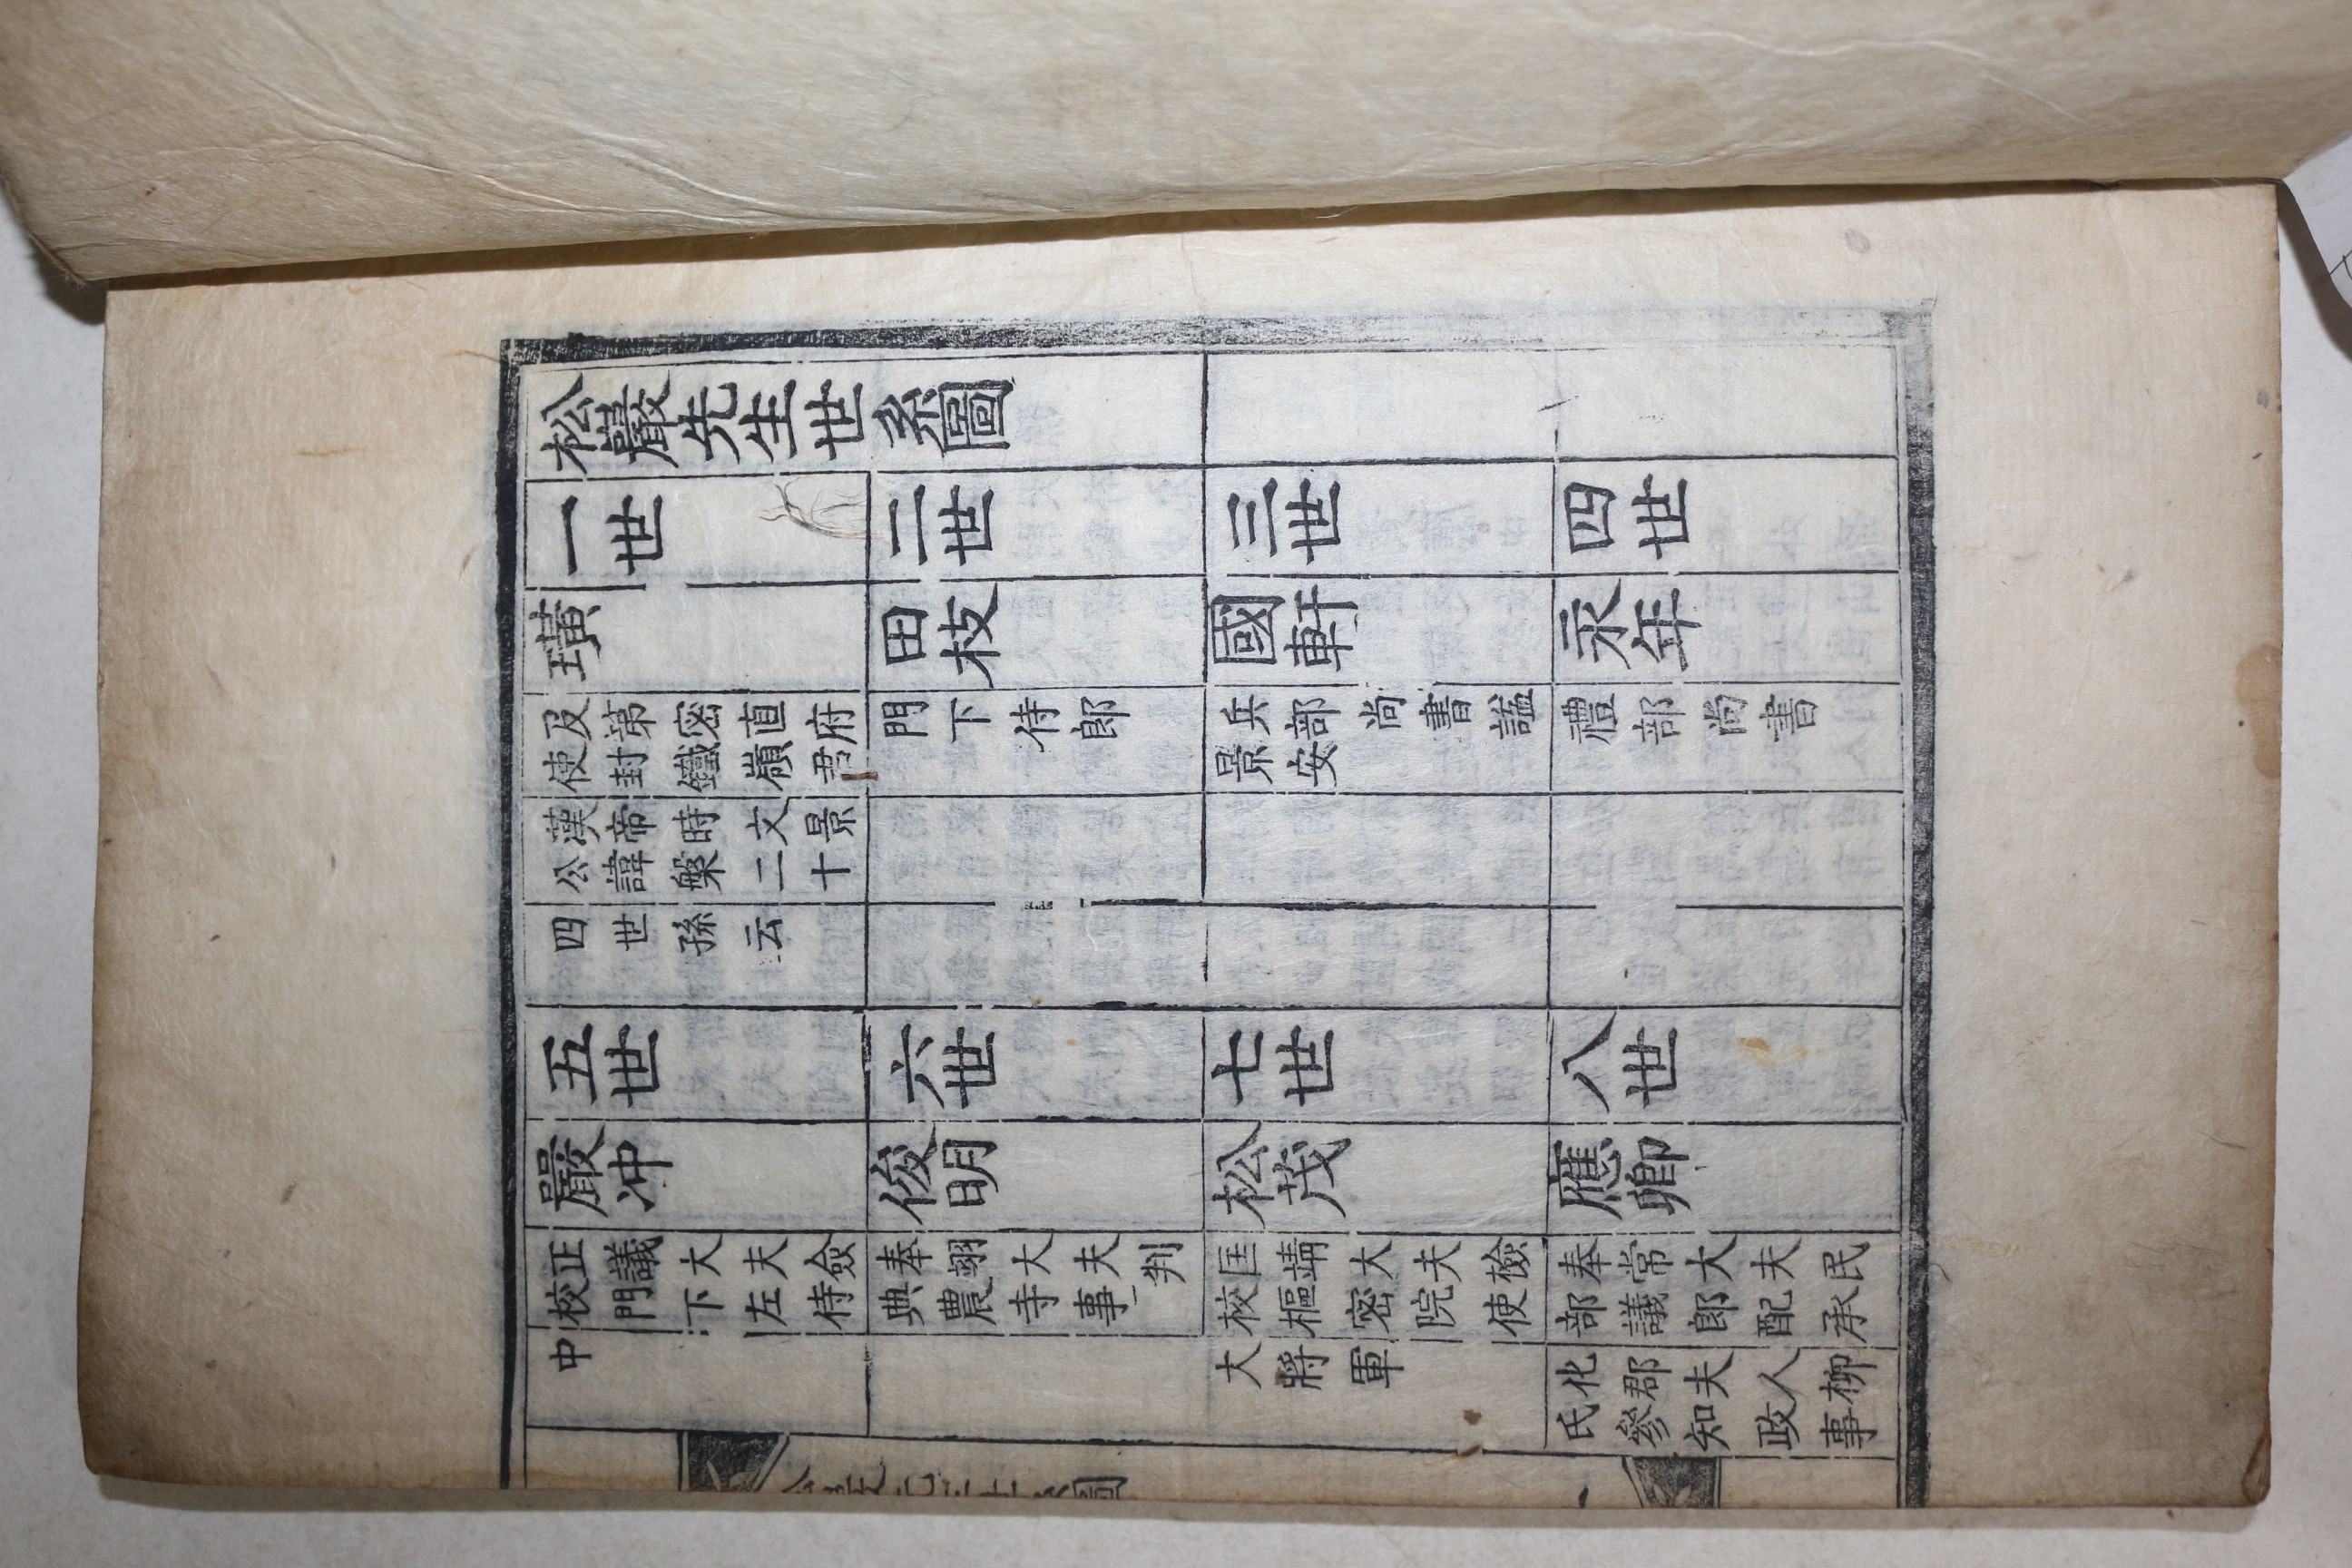 松巖先生世系圖
一世
二世
三世
四世
璜
田枝
國軒
永年
及第密直府
使封鐵嶺君
門下侍郎
兵部尚書謚
景安
禮部尚書
漢帝時文景
公諱槃二十
四世孫云
五世
六世
七世
八世
嚴冲
俊明
松茂
應卿
正議大夫僉
校門下左侍
奉翊大夫判
典農寺事
匡靖大夫檢
校樞密院使
奉常大夫民
部議郎配承
中
大將軍
化郡夫人柳
氏參知政事